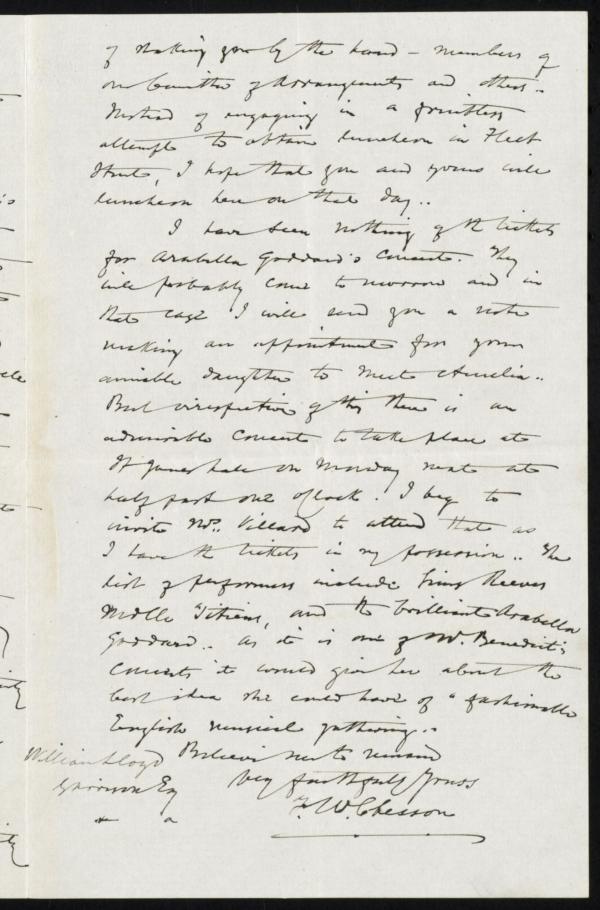 of shaking you by the hand – members of
our Committee of Arrangements and others..
Instead of engaging in a fruitless
attempt to obtain luncheon in Fleet
Street, I hope that you and yours will
luncheon here on that day..
I have seen nothing of the tickets
for Arabella Goddard's Concert. They
will probably come tomorrow and in
that case I will send you a note
making an appointment for your
amiable daughter to meet Amelia..
But irrespective of this there is an
admirable Concert to take place at
St James hall on Monday next at
half past one o'clock. I beg to
invite Mrs. Villard to attend that as
I have the tickets in my possession.. The
list of performers include Sims Reeves
Mdlle Titiens, and the brilliant Arabella
Goddard.. As it is one of Mr. Benedict's
Concerts it would give her about the
best idea she could have of "fashionable
English musical gathering..
Believe me to remain
Very faithfully Yours
F. W. Chesson
William Lloyd
Garrison Esq